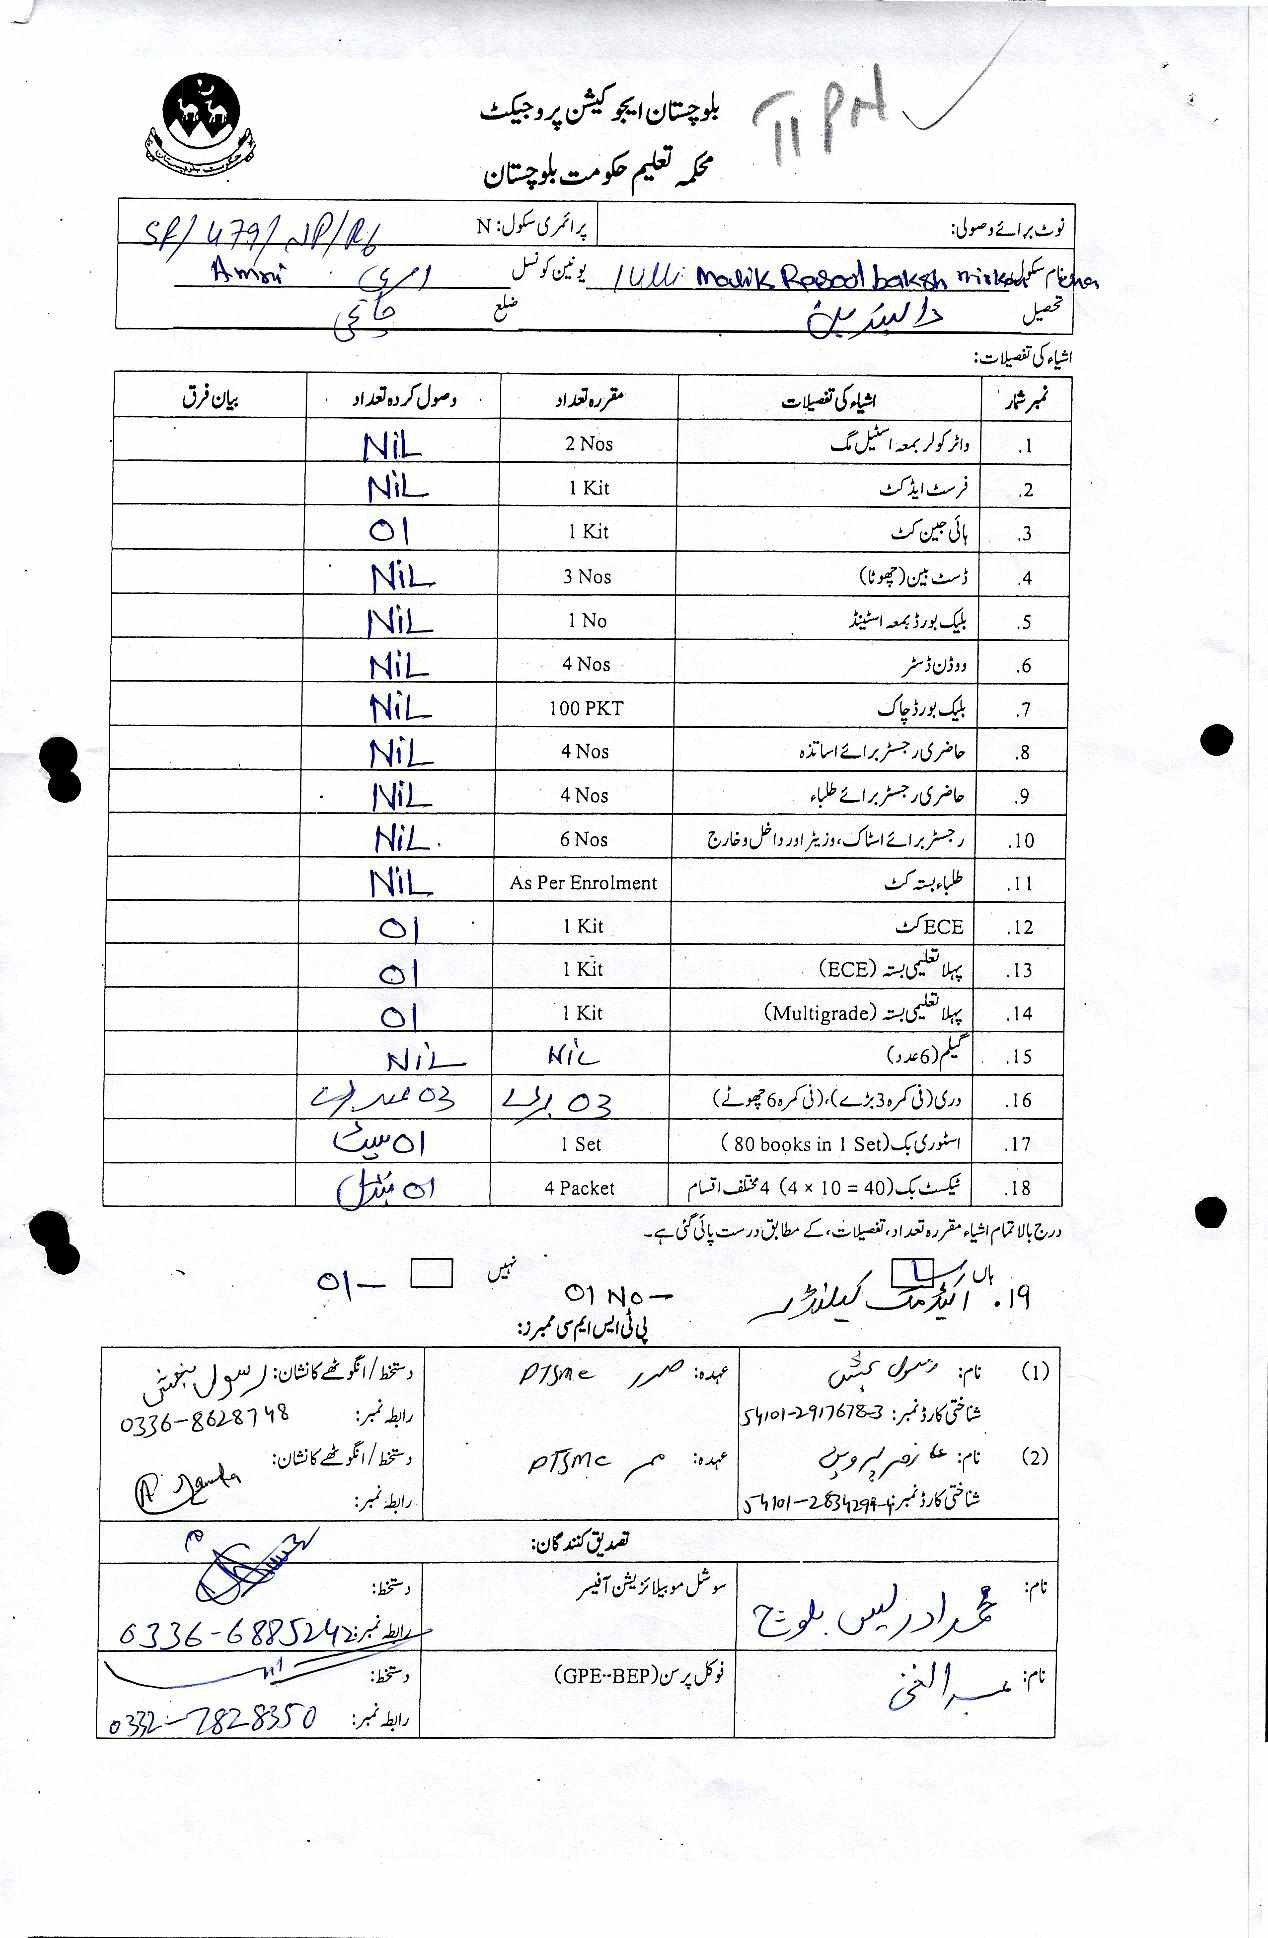 بلوچستان ایجوکیشن پروجیکٹ
II PN
محکمہ تعلیم حکومت بلوچستان
نوٹ برائے وصولی: پرائمری سکول: N SF/479/NP/R6
نام سکول Killi Malik Rasool baksh یونین کونسل امری Amri
تحصیل دالبندین ضلع چاغی
اشیاء کی تفصیلات:
نمبر شمار اشیاء کی تفصیلات مقررہ تعداد وصول کردہ تعداد بیان فرق
1. واٹر کولر بمعہ اسٹیل مگ 2 Nos NiL
2. فرسٹ ایڈ کٹ 1 Kit NiL
3. ہائی جین کٹ 1 Kit 01
4. ڈسٹ بین (چھوٹا) 3 Nos NiL
5. بلیک بورڈ بمعہ اسٹینڈ 1 No NiL
6. ووڈن ڈسٹر 4 Nos NiL
7. بلیک بورڈ چاک 100 PKT NiL
8. حاضری رجسٹر برائے اساتذہ 4 Nos NiL
9. حاضری رجسٹر برائے طلباء 4 Nos NiL
10. رجسٹر برائے اسٹاک، وزیٹر اور داخل و خارج 6 Nos NiL
11. طلباء بستہ کٹ As Per Enrolment NiL
12. ECE کٹ 1 Kit 01
13. پہلا تعلیمی بستہ (ECE) 1 Kit 01
14. پہلا تعلیمی بستہ (Multigrade) 1 Kit 01
15. گیلم (6 عدد) NiL NiL
16. دری (فی کمرہ 3 بڑے)، (فی کمرہ 6 چھوٹے) 03 بڑے 03 عدد بڑے
17. اسٹوری بک (80 books in 1 Set) 1 Set 01 سیٹ
18. ٹیکسٹ بک (4 × 10 = 40) 4 مختلف اقسام 4 Packet 01 بنڈل
درج بالا تمام اشیاء مقررہ تعداد، تفصیلات، کے مطابق درست پائی گئی ہے۔
ہاں نہیں
19. اکیڈمک کیلنڈر 01 No — 01 —
پی ٹی ایس ایم سی ممبرز:
(1) نام: رسول بخش عہدہ: صدر PTSMC دستخط/انگوٹھے کا نشان: رسول بخش
شناختی کارڈ نمبر: 54101-2917678-3 رابطہ نمبر: 0336-8628748
(2) نام: پروین عہدہ: ممبر PTSMC دستخط/انگوٹھے کا نشان:
شناختی کارڈ نمبر: 54101-2834299-4 رابطہ نمبر:
تصدیق کنندگان:
نام: محمد ادریس بلوچ سوشل موبیلائزیشن آفیسر دستخط:
رابطہ نمبر: 0336-6885242
نام: عبدالغنی فوکل پرسن (GPE--BEP) دستخط:
رابطہ نمبر: 0332-7828350